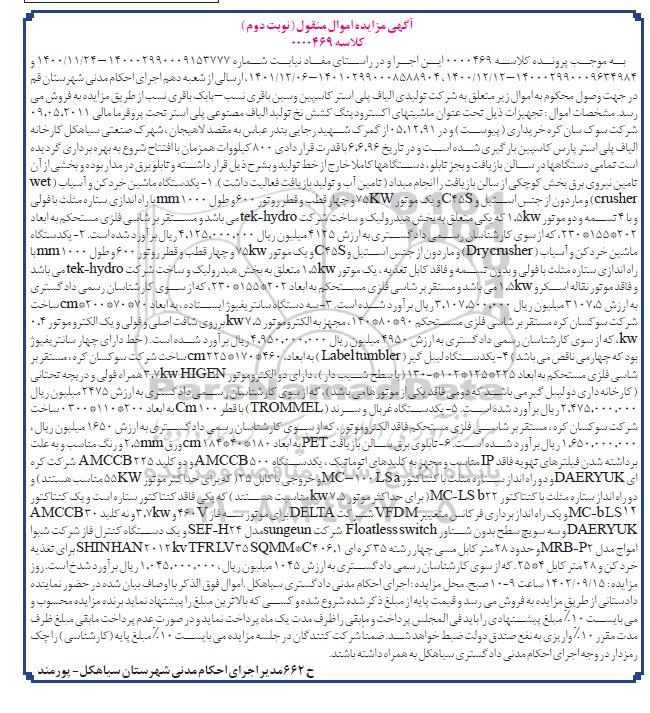 آگهی مزایده اموال منقول (نوبت دوم)
کلاسه ۰۰۰۰۴۶۹
به موجب پرونده کلاسه ۰۰۰۰۴۶۹ این اجرا و در راستای مفاد نیابت شماره ۱۴۰۰۰۲۹۹۰۰۰۹۱۵۳۷۷۷-۱۴۰۰/۱۱/۲۴ و
۱۴۰۰۰۲۹۹۰۰۰۹۶۳۴۹۸۴-۱۴۰۰/۱۲/۱۲، ۱۴۰۱۰۲۹۹۰۰۰۸۵۸۸۹۰۴-۱۴۰۱/۱۲/۰۶، ارسالی از شعبه دهم اجرای احکام مدنی شهرستان قم
در جهت وصول محکوم به اموال زیر متعلق به شرکت تولیدی الیاف پلی استر کاسپین وسین باقری نسب-بابک باقری نسب از طریق مزایده به فروش می
رسد. مشخصات اموال: تجهیزات ذیل تحت عنوان ماشینهای اکسترودینگ کشش نخ تولید الیاف مصنوعی پلی استر تحت پروفرما مالی ۰۹.۰۵.۲۰۱۱
شرکت سوک سان کره خریداری (پیوست) و در ۰۵.۱۲.۹۱ از گمرک شهید رجایی بندر عباس به مقصد لاهیجان، شهرک صنعتی سیاهکل کارخانه
الیاف پلی استر پارس کاسپین بارگیری شده است و در تاریخ ۶.۶.۹۶ با قدرت قرار دادی ۸۰۰ کیلووات همزمان با افتتاح شروع به بهره برداری گردیده
است تمامی دستگاهها در سالن بازیافت و بجز تابلو، دستگاهها کاملا خارج از خط تولید و بشرح ذیل قرار داشته و تابلو برق در مدار بوده و بخشی از آن
تامین نیروی برق بخش کوچکی از سالن بازیافت را انجام میداد (تامین آب و تولید بازیافت فعالیت داشت). ۱- یکدستگاه ماشین خرد کن و آسیاب (wet
crusher) و ماردون از جنس استیل و C۴۵S و یک موتور ۷۵KW و چهار قطب و قطر روتور ۶۰۰ و طول ۱۰۰۰mm با راه اندازی ستاره مثلث با فولی
و با ۴ تسمه و دو موتور ۱،۵kw که یکی متعلق به بخش هیدرولیک و ساخت شرکت tek-hydro می باشد و مستقر بر شاسی فلزی مستحکم به ابعاد
۲۰۲*۱۵۵*۲۳۰، که از سوی کارشناسان رسمی دادگستری به ارزش ۴۱۲۵ میلیون ریال ۴.۱۲۵.۰۰۰.۰۰۰ ریال برآورد شده است. ۲- یکدستگاه
ماشین خرد کن و آسیاب (Dry crusher) و ماردون از جنس استیل و C۴۵S و یک موتور ۷۵kw و چهار قطب و قطر روتور ۶۰۰ و طول ۱۰۰۰mm با
راه اندازی ستاره مثلث با فولی و بدون تسمه و فاقد کابل تغذیه، یک موتور ۱.۵kw متعلق به بخش هیدرولیک و ساخت شرکت tek-hydro می باشد
و فاقد موتور نقاله اسکرو ۱.۵kw می باشد و مستقر بر شاسی فلزی مستحکم به ابعاد ۲۰۲*۱۵۵*۲۳۰، که از سوی کارشناسان رسمی دادگستری
به ارزش ۳۱۰۷.۵ میلیون ریال ۳.۱۰۷.۵۰۰.۰۰۰ ریال برآورد شده است. ۳-سه دستگاه سانتریفیوژ ایستاده، به ابعاد ۷۰*۷۰*۲۰۰cm ساخت
شرکت سوکسان کره مستقر بر شاسی فلزی مستحکم ۹۰*۸۰*۱۴۰، مجهز به الکتروموتور ۷.۵kw بر روی شافت اصلی و فولی و یک الکتروموتور ۰.۴
kw، که از سوی کارشناسان رسمی دادگستری به ارزش ۴۹۵۰ میلیون ریال ۴.۹۵۰.۰۰۰.۰۰۰ ریال برآورد شده است. (خط دارای چهار سانتریفیوژ
بود که چهارمی ناقص می باشد) ۴-یکدستگاه لیبل گیر (Label tumbler) به ابعاد، ۴۶۰*۱۷۰*۲۲۵cm ساخت شرکت سوکسان کره، مستقر بر
شاسی فلزی مستحکم به ابعاد ۲۲۵*۱۲۵*۱۰۲*-۱۳۰ (با سطح شیب دار)، دارای دو الکتروموتور ۳.۷kw HIGEN همراه فولی و دریچه تحتانی
(کارخانه داری دو لیبل گیر می باشند که دومی فاقد یکی از موتورها می باشد)، که از سوی کارشناسان رسمی دادگستری به ارزش ۲۴۷۵ میلیون ریال
۲.۴۷۵.۰۰۰.۰۰۰ ریال برآورد شده است. ۵- یکدستگاه غربال و سرند (TROMMEL) با قطر ۱۰۰Cm به ابعاد ۲۰۰*۱۱۰*۳۰۰ ساخت
شرکت سوکسان کره، مستقر بر شاسی فلزی مستحکم فاقد الکتروموتور، که از سوی کارشناسان رسمی دادگستری به ارزش ۱۶۵۰ میلیون ریال،
۱.۶۵۰.۰۰۰.۰۰۰ ریال برآورد شده است. ۶-تابلوی برق سالن بازیافت PET به ابعاد ۱۸۰*۴۰*۱۸۴cm ورق ۲.۵mm و رنگ مناسب و به علت
برداشته شدن فیلترهای تهویه فاقد IP مناسب و مجهز به کلیدهای اتوماتیک، یکدستگاه AMCCB ۵۰۰ و دو کلید AMCCB ۲۲۵ شرکت کره
ای DAERYUK و دو راه انداز ستاره مثلث با کنتاکتور MC-۱۰۰ LSa و خروجی با کابل ۲۵ (که برای حداکثر موتور ۵۵KW مناسب هستند) و
دو راه انداز ستاره مثلث با کنتاکتور MC-LS b۲۲ (برای حداکثر موتور ۷.۵kw مناسبت هستند) که یکی فاقد کنتاکتور ستاره است و یک کنتاکتور
MC-bLS۱۲ و یک راه انداز برداری فرکانس متغییر VFDM شرکت DELTA برای موتور سه فاز ۴۶۰V و ۳.۷kw و نه کلید AMCCB۳۰
DAERYUK و سه سویچ سطح بدون شناور Floatless switch شرکت sungeun مدل SEF-H۲۴ و یک دستگاه کنترل فاز شرکت شیوا
امواج مدل MRB-P۲ و حدود ۲۸ متر کابل مسی چهار رشته ۳۵ کره ای SHINHAN۲۰۱۲ kv TFR.LV۳۵ SQMM*C۴۰۶.۱۱ برای تغذیه
خرد کن و ۲۸ متر کابل ۴*۲۵، که از سوی کارشناسان رسمی دادگستری به ارزش ۱۰۴۵ میلیون ریال، ۱.۰۴۵.۰۰۰.۰۰۰ ریال برآورد شدخ است. روز
مزایده: ۱۴۰۲/۰۹/۱۵ ساعت ۹-۱۰ صبح. محل مزایده: اجرای احکام مدنی دادگستری سیاهکل. اموال فوق الذکر با اوصاف بیان شده در حضور نماینده
دادستانی از طریق مزایده به فروش می رسد و قیمت پایه از مبلغ ذکر شده شروع شده و کسی که بالاترین مبلغ را پیشنهاد نماید برنده مزایده محسوب و
می بایست ۱۰٪ مبلغ پیشنهادی را باید فی المجلس پرداخت و مابقی را ظرف مدت یک ماه پرداخت نماید و در صورت عدم پرداخت مابقی مبلغ ظرف
مدت مقرر ۱۰٪ واریزی به نفع صندوق دولت ضبط خواهد شد. ضمنا شرکت کنندگان در جلسه مزایده می بایست ۱۰٪ مبلغ پایه (کارشناسی) را چک
رمزدار در وجه اجرای احکام مدنی دادگستری سیاهکل به همراه داشته باشند.
ح ۶۶۲ مدیر اجرای احکام مدنی شهرستان سیاهکل - پورمند